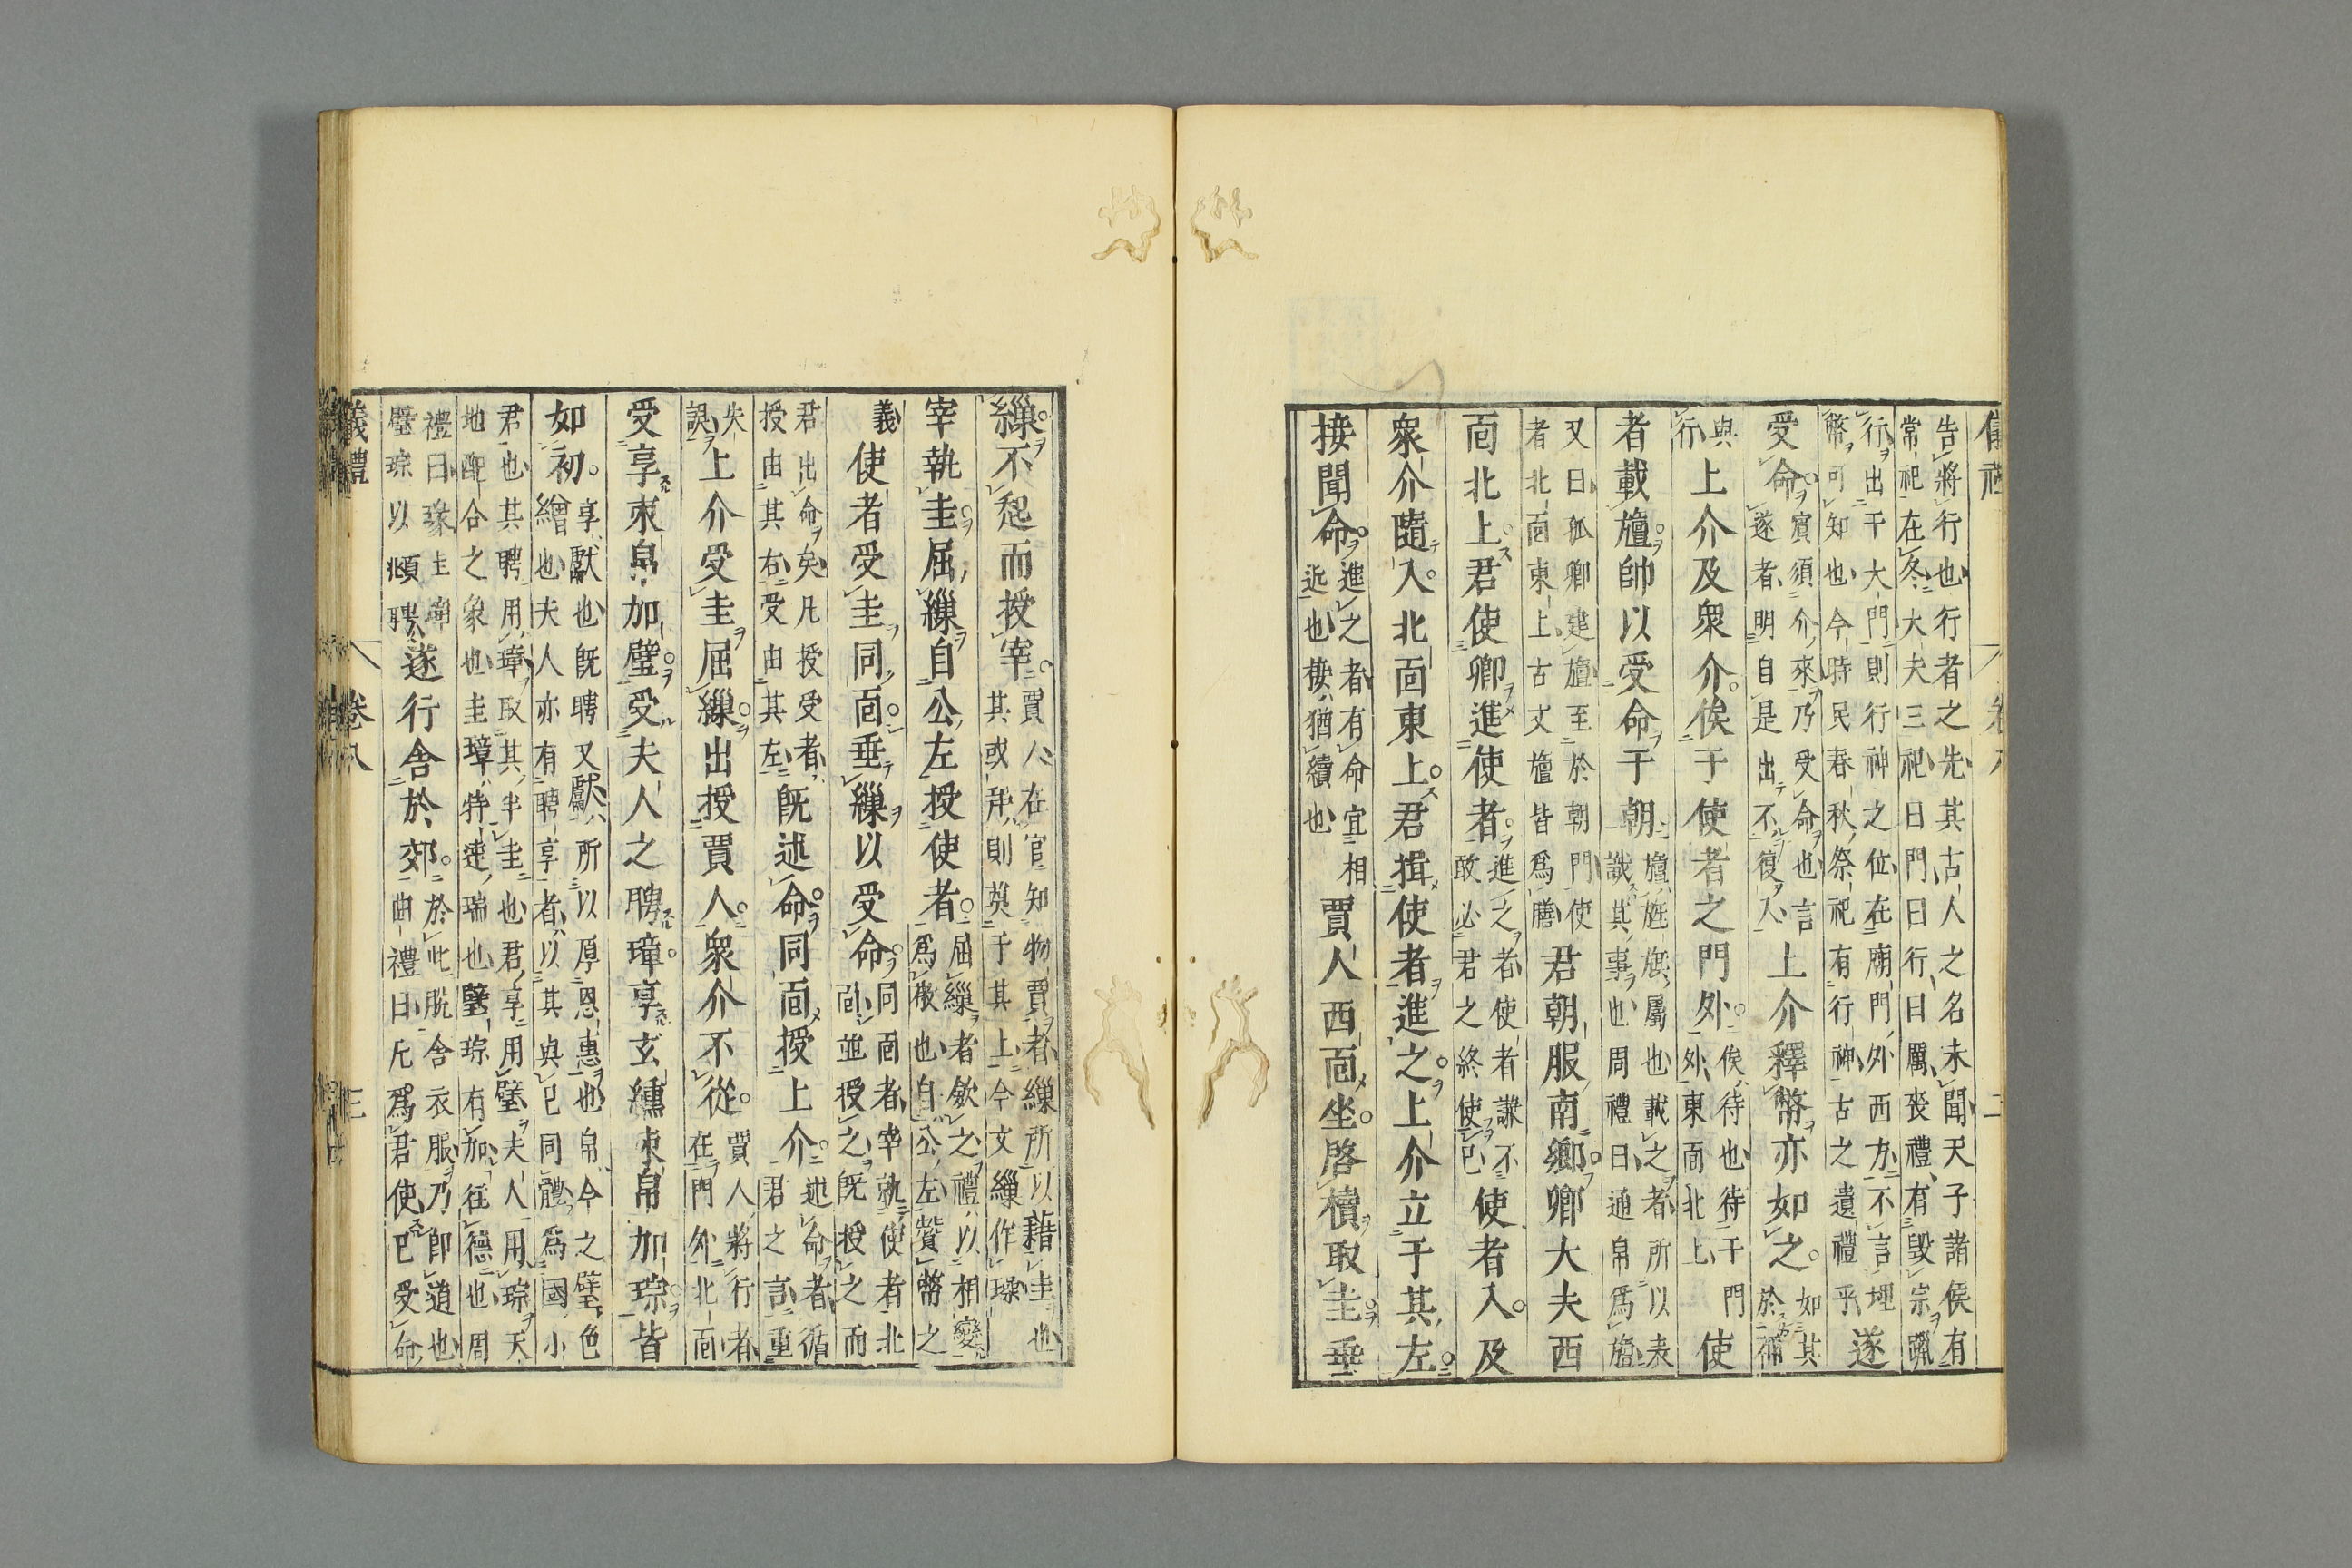 告將行也行者之先其古人之名未聞天子諸侯有
常祀在冬大夫三祀曰門曰行曰厲喪禮有毀宗躐
行出于大門則行神之位在廟門外西方不言埋
幣可知也今時民春秋祭祀有行神古之遺禮乎
遂
受命
賓須介來乃受命也言
遂者明自是出不復入
上介釋幣亦如之
如其
於禰
與
行
上介及眾介俟于使者之門外
俟待也待于門
外東面北上
使
者載旜帥以受命于朝
旜旌旗屬也載之者所以表
識其事也周禮曰通帛爲旜
又曰孤卿建旜至於朝門使
者北面東上古文旜皆爲膳
君朝服南鄉卿大夫西
面北上君使卿進使者
進之者使者謙不
敢必君之終使己
使者入及
眾介隨入北面東上君揖使者進之上介立于其左
接聞命
進之者有命宜相
近也接猶續也
賈人西面坐啓櫝取圭垂
繅不起而授宰
賈人在官知物賈者繅所以藉圭也
其或拜則奠于其上今文繅作璪
宰執圭屈繅自公左授使者
屈繅者斂之禮以相變
爲敬也自公左贊幣之
義
使者受圭同面垂繅以受命
同面者宰就使者北
面並授之既授之而
君出命矣凡授受者
授由其右受由其左
既述命同面授上介
述命者循
君之言重
失
誤
上介受圭屈繅出授賈人眾介不從
賈人將行者
在門外北面
受享束帛加璧受夫人之聘璋享玄纁束帛加琮皆
如初
享獻也既聘又獻所以厚恩惠也帛今之璧色
繒也夫人亦有聘享者以其與己同體爲國小
君也其聘用璋取其半圭也君享用璧夫人用琮天
地配合之象也圭璋特達瑞也璧琮有加往德也周
禮曰瑑圭璋
璧琮以頫聘
遂行舍於郊
於此脫舍衣服乃即道也
曲禮曰凡爲君使已受命
儀禮
卷八
三